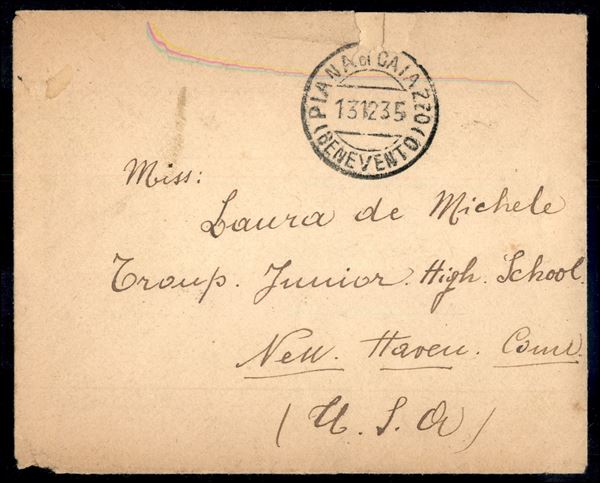 PIANA DI CAIAZZO (O)
131235
(BENEVENTO)
Miss:
Laura de Michele
Troup. Junior. High. School.
New. Haven. Conn.
(U. S. A)